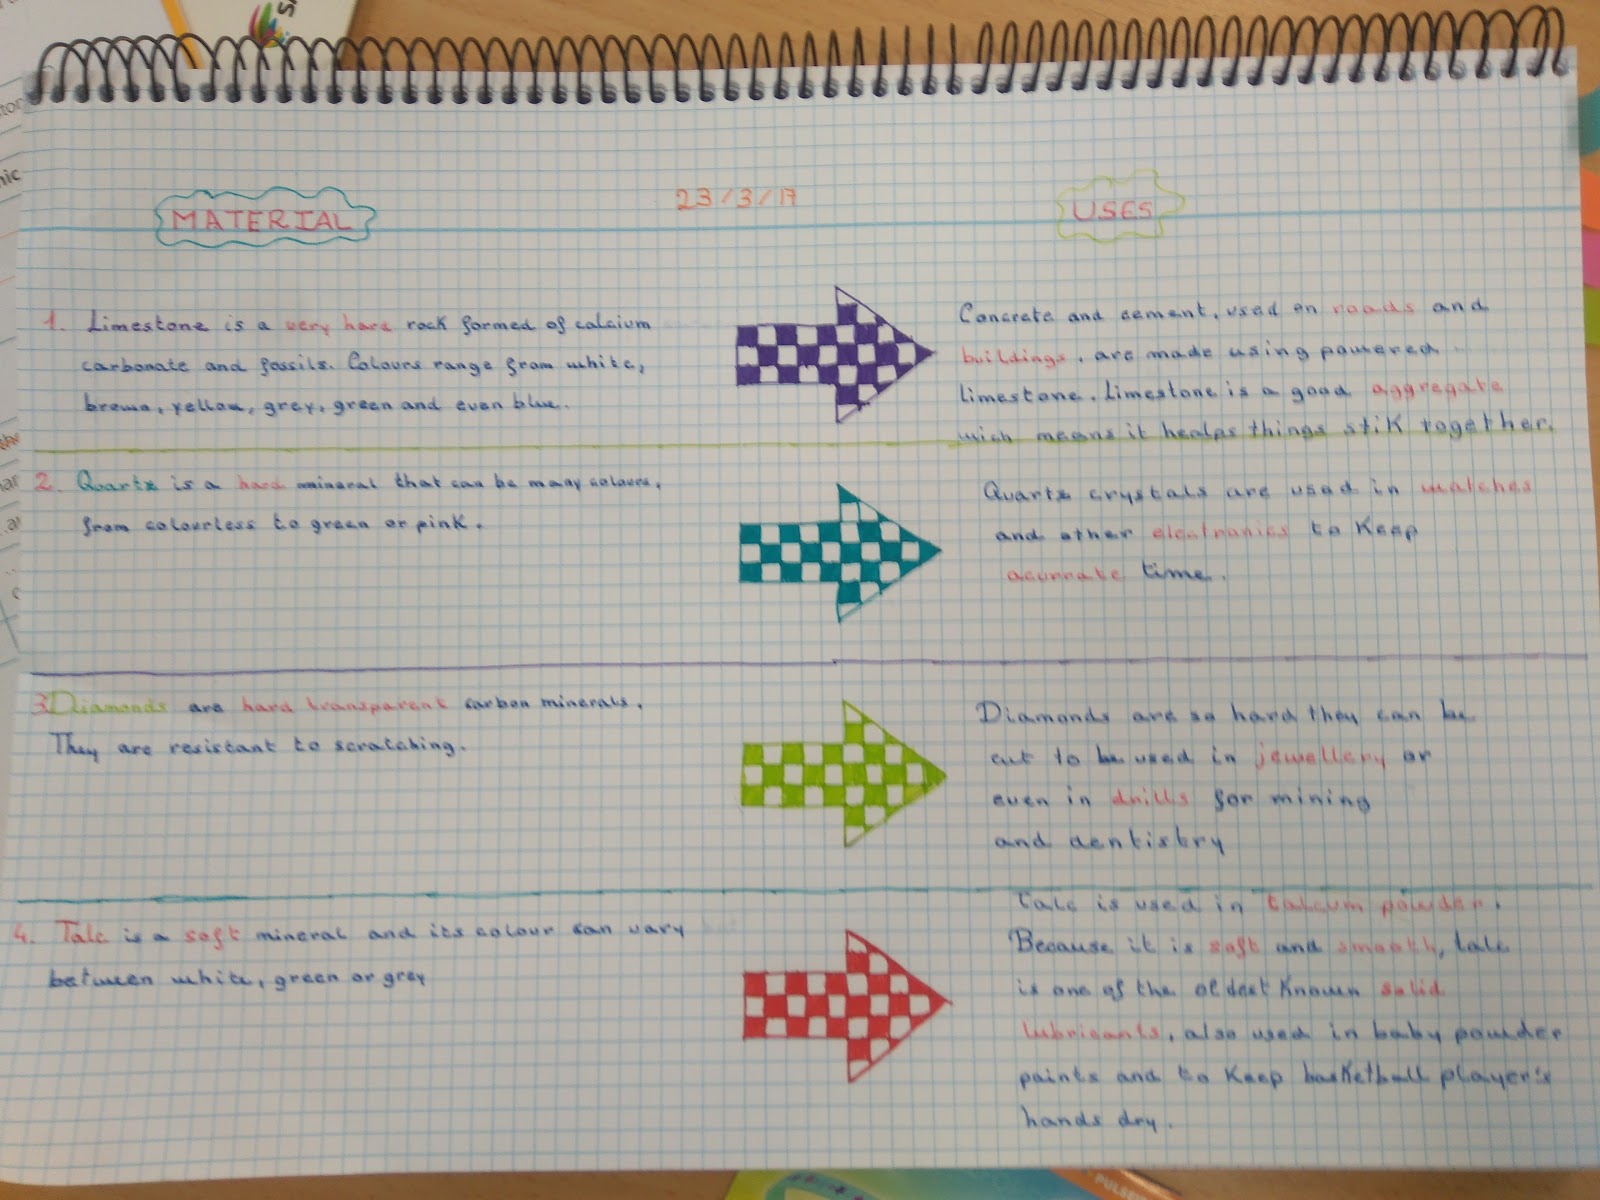 MATERIAL
23/3/17
USES
1. Limestone is a very hard rock formed of calcium
carbonate and fossils. Colours range from white,
brown, yellow, grey, green and even blue.
Concrete and cement, used on roads and
buildings, are made using powered
limestone. Limestone is a good aggregate
wich means it healps things stik together.
2. Quartz is a hard mineral that can be many colours,
from colourless to green or pink.
Quartz crystals are used in watches
and other electronics to keep
acurrate time.
3. Diamonds are hard transparent carbon minerals.
They are resistant to scratching.
Diamonds are so hard they can be
cut to be used in jewellery or
even in drills for mining
and dentistry
4. Talc is a soft mineral and its colour can vary
between white, green or grey
Talc is used in talcum powder.
Because it is soft and smooth, talc
is one of the oldest known solid
lubricants, also used in baby powder
paints and to keep basketball player's
hands dry.